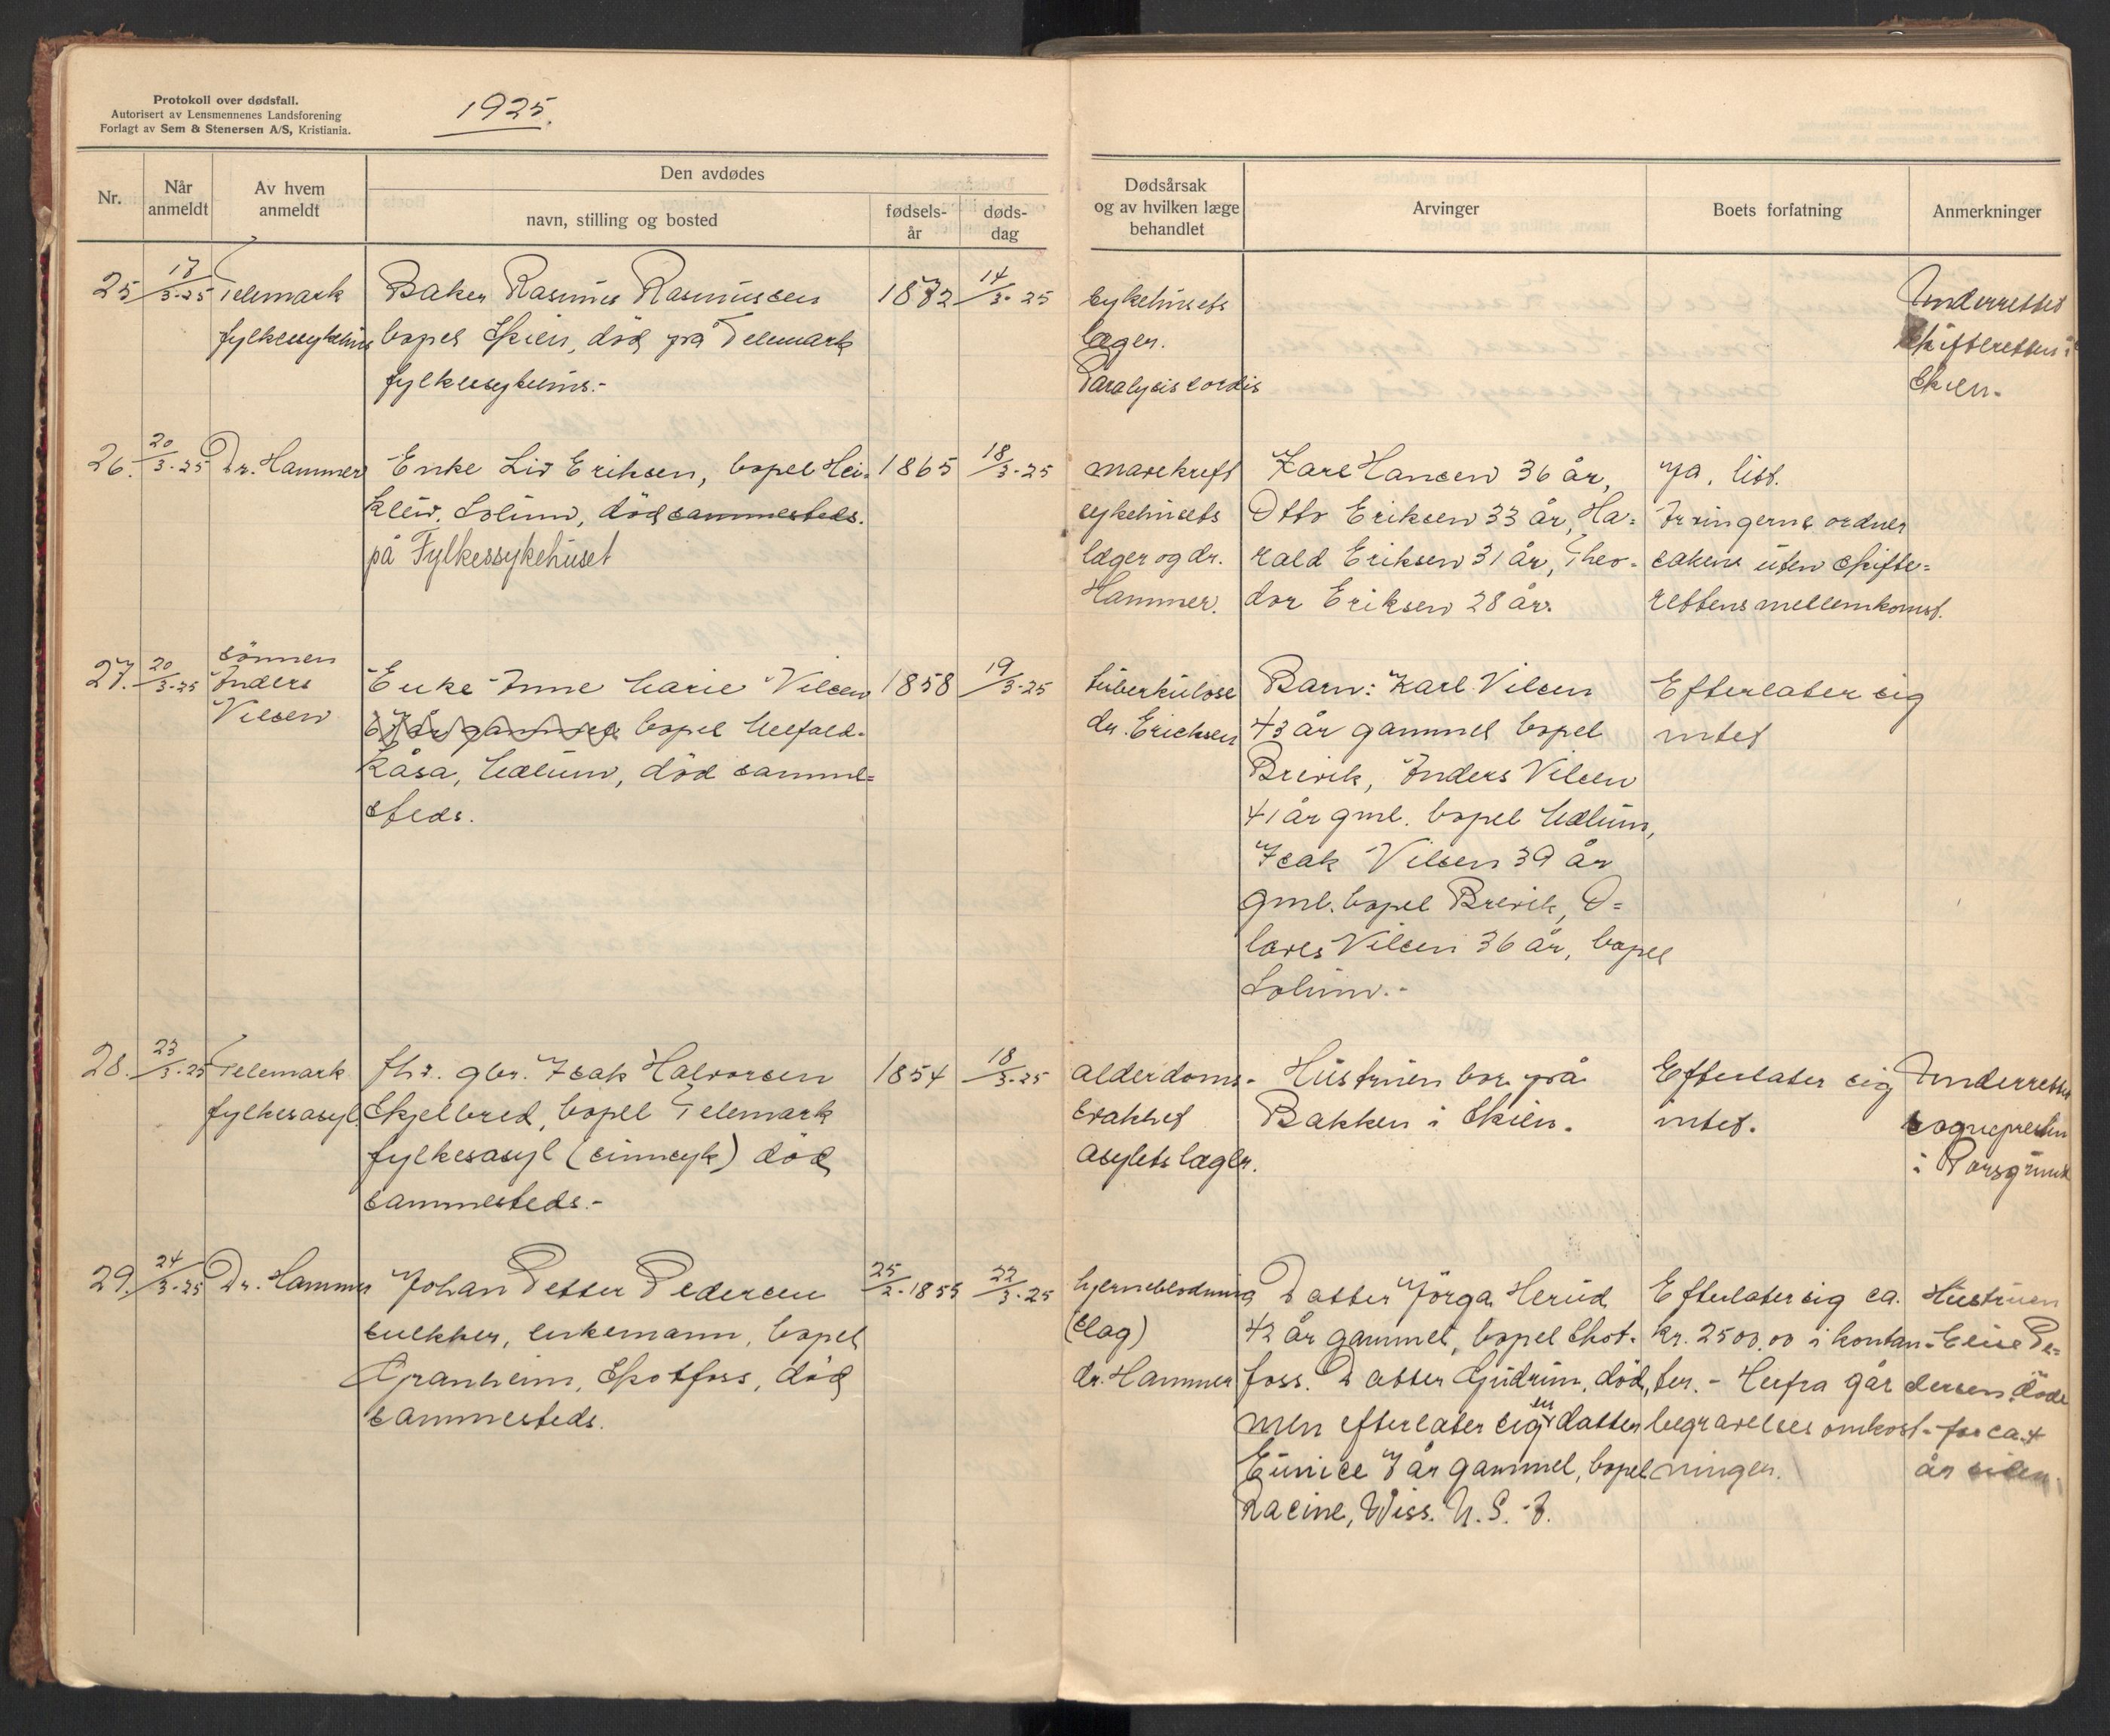 Protokoll over dødsfall.
Autorisert av Lensmennenes Landsforening
Forlagt av Sem & Stenersen A/S, Kristiania.
1925.
Nr.
Når anmeldt
Av hvem anmeldt
Den avdødes
navn, stilling og bosted
fødsels-år
døds-dag
Dødsårsak og av hvilken læge behandlet
Arvinger
Boets forfatning
Anmerkninger
25 17/3-25 Telemark Baker Rasmus Rasmussen 1872 14/3-25 sykehusets Underrettet
fylkessykehus bopel Skien, död på Telemark læger. skifteretten i
fylkessykehus.- Paralysis cordis Skien.
26. 20/3-25 Dr. Hammer Enke Liv Eriksen, bopel Hei- 1865 18/3-25 mavekreft Karl Hansen 36 år, Ja, litt.
kleiv, Solum, död sammesteds. sykehusets Otto Eriksen 33 år, Ha= Arvingerne ordner
på Fylkessykehuset læger og dr. rald Eriksen 31 år, Theo= saken uten skifte=
Hammer. dor Eriksen 28 år. rettens mellemkomst.
27. 20/3-25 sönnen Anders Nilsen Enke Anne Marie Nilsen 1858 19/3-25 tuberkulose Barn: Karl Nilsen Efterlater sig
år gammel bopel Melfald- dr. Erichsen 43 år gammel bopel intet
kåsa, Mælum, död samme= Brevik, Anders Nilsen
steds. 41 år gml. bopel Mælum,
Isak Nilsen 39 år
gml. bopel Brevik, O=
laves Nilsen 36 år, bopel
Solum.-
28. 23/3-25 Telemark fhv. gbr. Isak Halvorsen 1854 18/3-25 alderdoms- Hustruen bor på Efterlater sig Underrettet
fylkesasyl. Skjelbred, bopel Telemark svakhet Bakken i Skien. intet. sognepresten
fylkesasyl (sinnsyk) död asylets læger. i Porsgrunn
sammesteds.-
29. 24/3-25 Dr. Hammer Johan Petter Pedersen 25/2-1855 22/3-25 hjerneblodning Datter Jörga Herud Efterlater sig ca. Hustruen
snekker, enkemann, bopel (slag) 42 år gammel, bopel Skot- kr. 2500.00 i kontan- Elise Pe=
Granheim, Skotfoss, död dr. Hammer foss. Datter Gudrun, död, ter. - Herfra går dersen döde
sammesteds. men efterlater sig en datter begravelsesomkost- for ca. 4
Eunice 7 år gammel, bopel ninger. år siden.
Racine, Wiss. U.S.A.